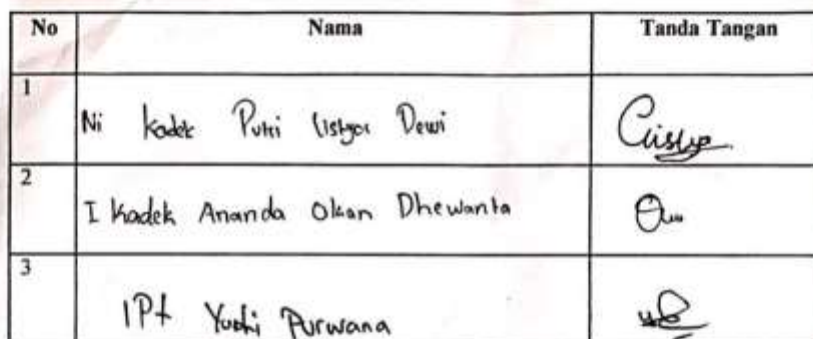 No Nama Tanda Tangan
1
Ni Kadek Putri Listya Dewi
2
I Kadek Ananda Okan Dhewanta
3
IPt Yudhi Purwana